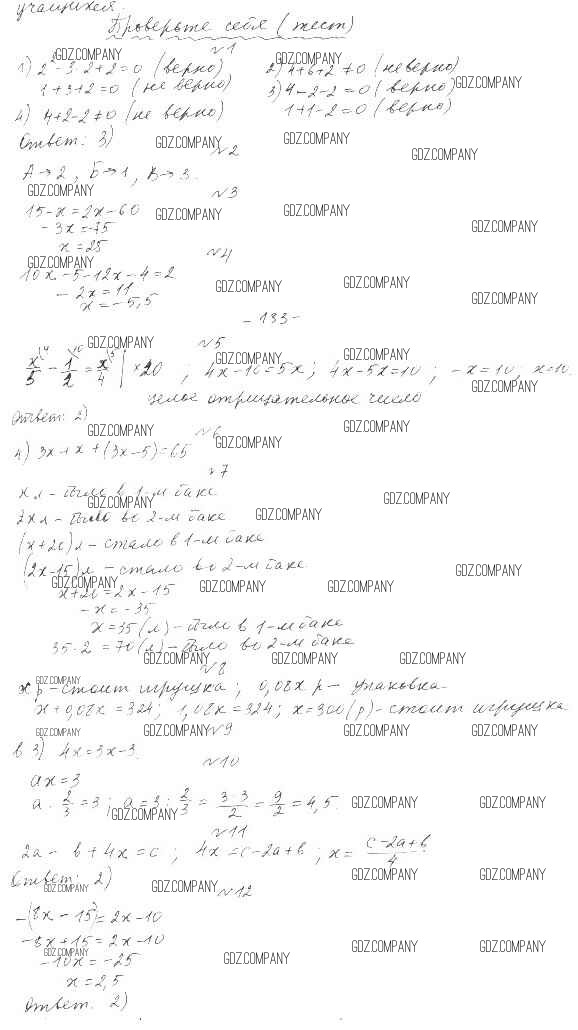 учащихся.
Проверьте себя (тест)
№1
1) 2² - 3·2 + 2 = 0 (верно) 2) 4+6+2 ≠ 0 (неверно)
1+3+2=0 (не верно) 3) 4-2-2=0 (верно)
4) 4+2-2≠0 (не верно) 1+1-2=0 (верно)
Ответ: 3)
№2
А→2, Б→1, В→3.
№3
15-x=2x-60
-3x=-75
x=25
№4
10x-5-12x-4=2
-2x=11
x=-5,5
-133-
№5
x/5 \4 - 1/2 \10 = x/4 \5 | ×20 ; 4x-10=5x; 4x-5x=10; -x=10, x=10.
целое отрицательное число
Ответ: 2)
№6
4) 3x+x+(3x-5)=65
№7
x л - было в 1-м баке
2x л - было во 2-м баке
(x+20) л - стало в 1-м баке
(2x-15) л - стало во 2-м баке
x+20=2x-15
-x=-35
x=35 (л) - было в 1-м баке
35·2=70 (л) - было во 2-м баке
№8
x р - стоит игрушка; 0,08x р - упаковка
x+0,08x=324; 1,08x=324; x=300 (р) - стоит игрушка
№9
в 3) 4x=3x-3.
№10
ax=3
a·2/3=3; a=3:2/3=3·3/2=9/2=4,5.
№11
2a-b+4x=c; 4x=c-2a+b; x=(c-2a+b)/4
Ответ: 2)
№12
-(8x-15)=2x-10
-8x+15=2x-10
-10x=-25
x=2,5
Ответ: 2)
GDZ.COMPANY